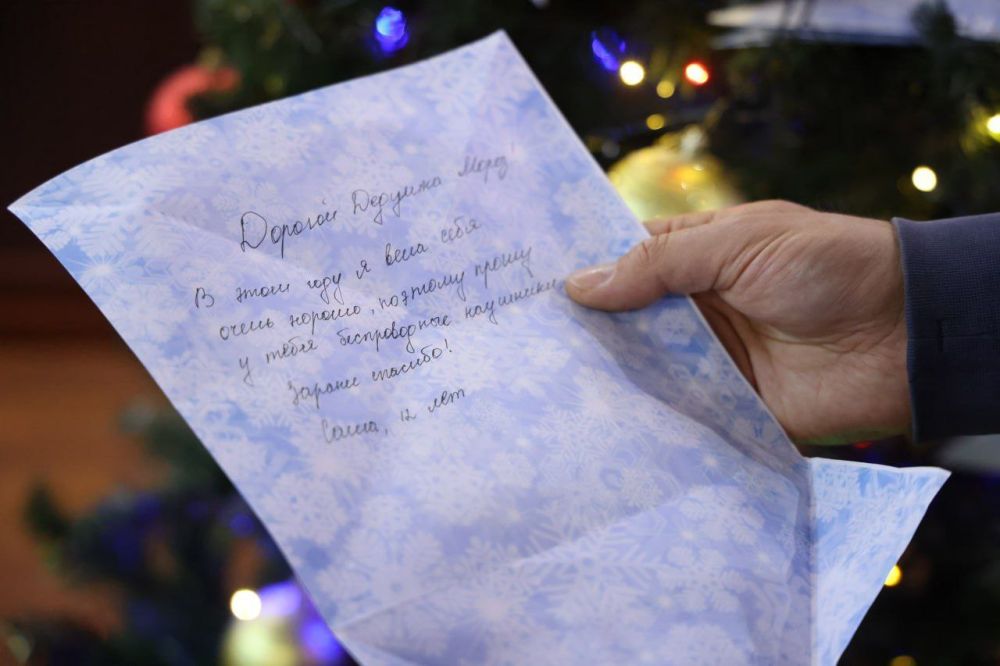 Дорогой Дедушка Мороз!
В этом году я вела себя
очень хорошо, поэтому прошу
у тебя беспроводные наушники.
Заранее спасибо!
Саша, 12 лет